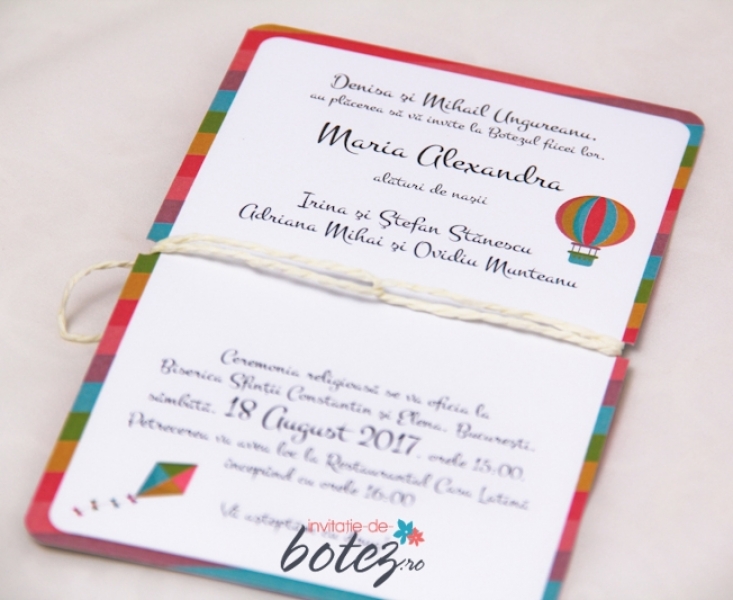 Denisa și Mihail Ungureanu,
au plăcerea să vă invite la Botezul fiicei lor,
Maria Alexandra
alături de nașii
Irina și Ștefan Stănescu
Adriana Mihai și Ovidiu Munteanu
Ceremonia religioasă se va oficia la
Biserica Sfinții Constantin și Elena, București,
sâmbătă, 18 August 2017, orele 15:00.
Petrecerea va avea loc la Restaurantul Casa Latină
începând cu orele 16:00
Vă așteptăm cu
invitatie-de-
botez.ro